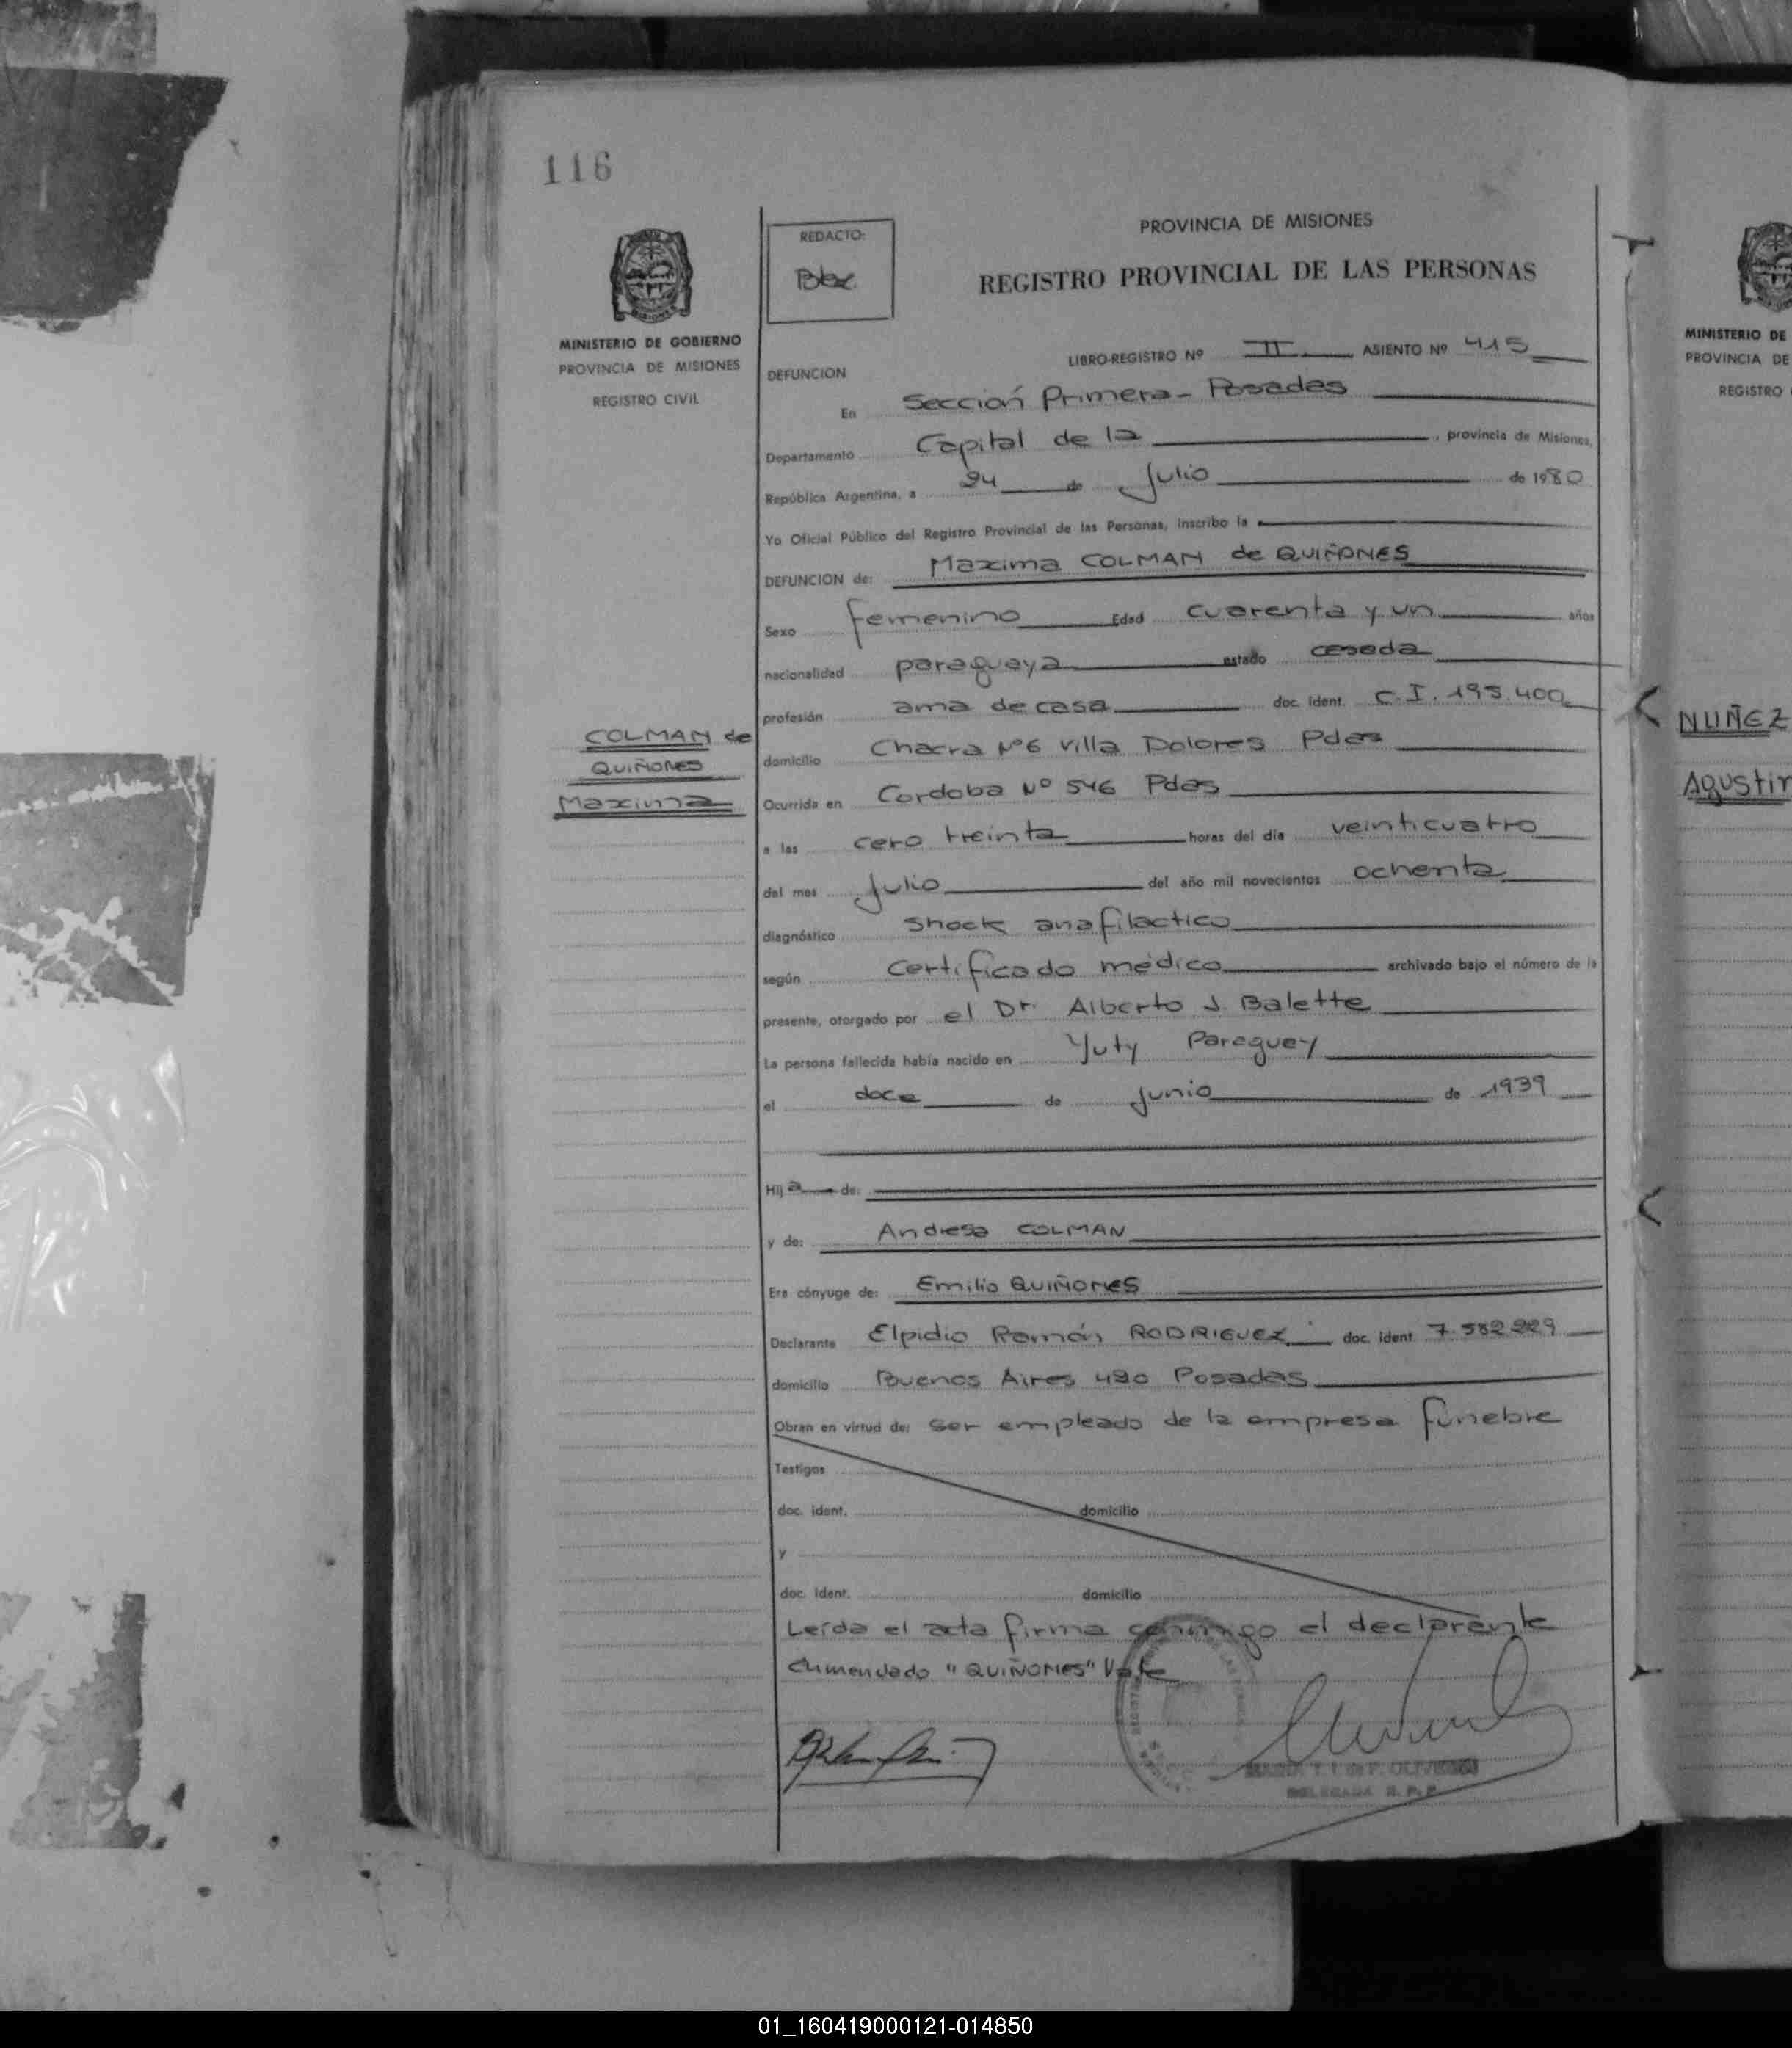 116
REDACTO:
PROVINCIA DE MISIONES
REGISTRO PROVINCIAL DE LAS PERSONAS
MINISTERIO DE GOBIERNO
PROVINCIA DE MISIONES
REGISTRO CIVIL
LIBRO-REGISTRO Nº II ASIENTO Nº 415
DEFUNCION
En Sección Primera - Posadas
Departamento Capital de la, provincia de Misiones,
República Argentina, a 24 de Julio de 1980
Yo Oficial Público del Registro Provincial de las Personas, Inscribo la
DEFUNCION de: Maxima COLMAN de QUIÑONES
Sexo femenino Edad cuarenta y un años
nacionalidad paraguaya estado casada
profesión ama de casa doc. ident. C.I. 195.400
COLMAN de
QUIÑONES
Maxima
domicilio Chacra Nº6 Villa Dolores Pdas
Ocurrida en Cordoba Nº 546 Pdas
a las cero treinta horas del día veinticuatro
del mes Julio del año mil novecientos ochenta
diagnóstico shock anafilactico
según certificado médico archivado bajo el número de la
presente, otorgado por el Dr. Alberto J. Balette
La persona fallecida había nacido en Yuty Paraguay
el doce de junio de 1939
Hija de:
y de: Andresa COLMAN
Era cónyuge de: Emilio QUIÑONES
Declarante Elpidio Ramón RODRIGUEZ doc. ident. 7.582.229
domicilio Buenos Aires 490 Posadas
Obran en virtud de: ser empleado de la empresa fúnebre
Testigos
doc. ident. domicilio
y
doc. ident. domicilio
Leída el acta firma conmigo el declarante
Enmendado "QUIÑONES" Vale
DELEGADA R. P. P.
MINISTERIO DE
PROVINCIA DE
REGISTRO
NUÑEZ
Agustin
01_160419000121-014850